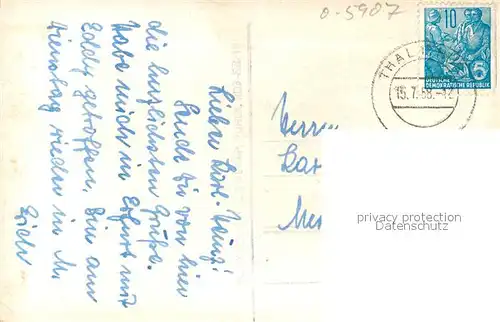 0-5907
10
DEUTSCHE
DEMOKRATISCHE REPUBLIK
5
THAL
15.7.58.-12
Lieber Karl-Heinz!
Sende dir von hier
die herzlichsten Grüße.
Habe mich in Erfurt mit
Eddy getroffen. Bin am
Dienstag wieder in M.
Erich
Herrn
Kar
Me
privacy protection
www.oldthing.de